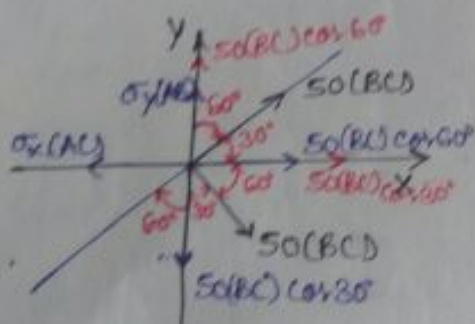 Y
50(BC) cos 60°
σy(AB)
60°
50(BC)
30°
σx(AC)
50(BC) cos 60°
60°
X
50(BC) cos 30°
60°
30°
50(BC)
50(BC) cos 30°